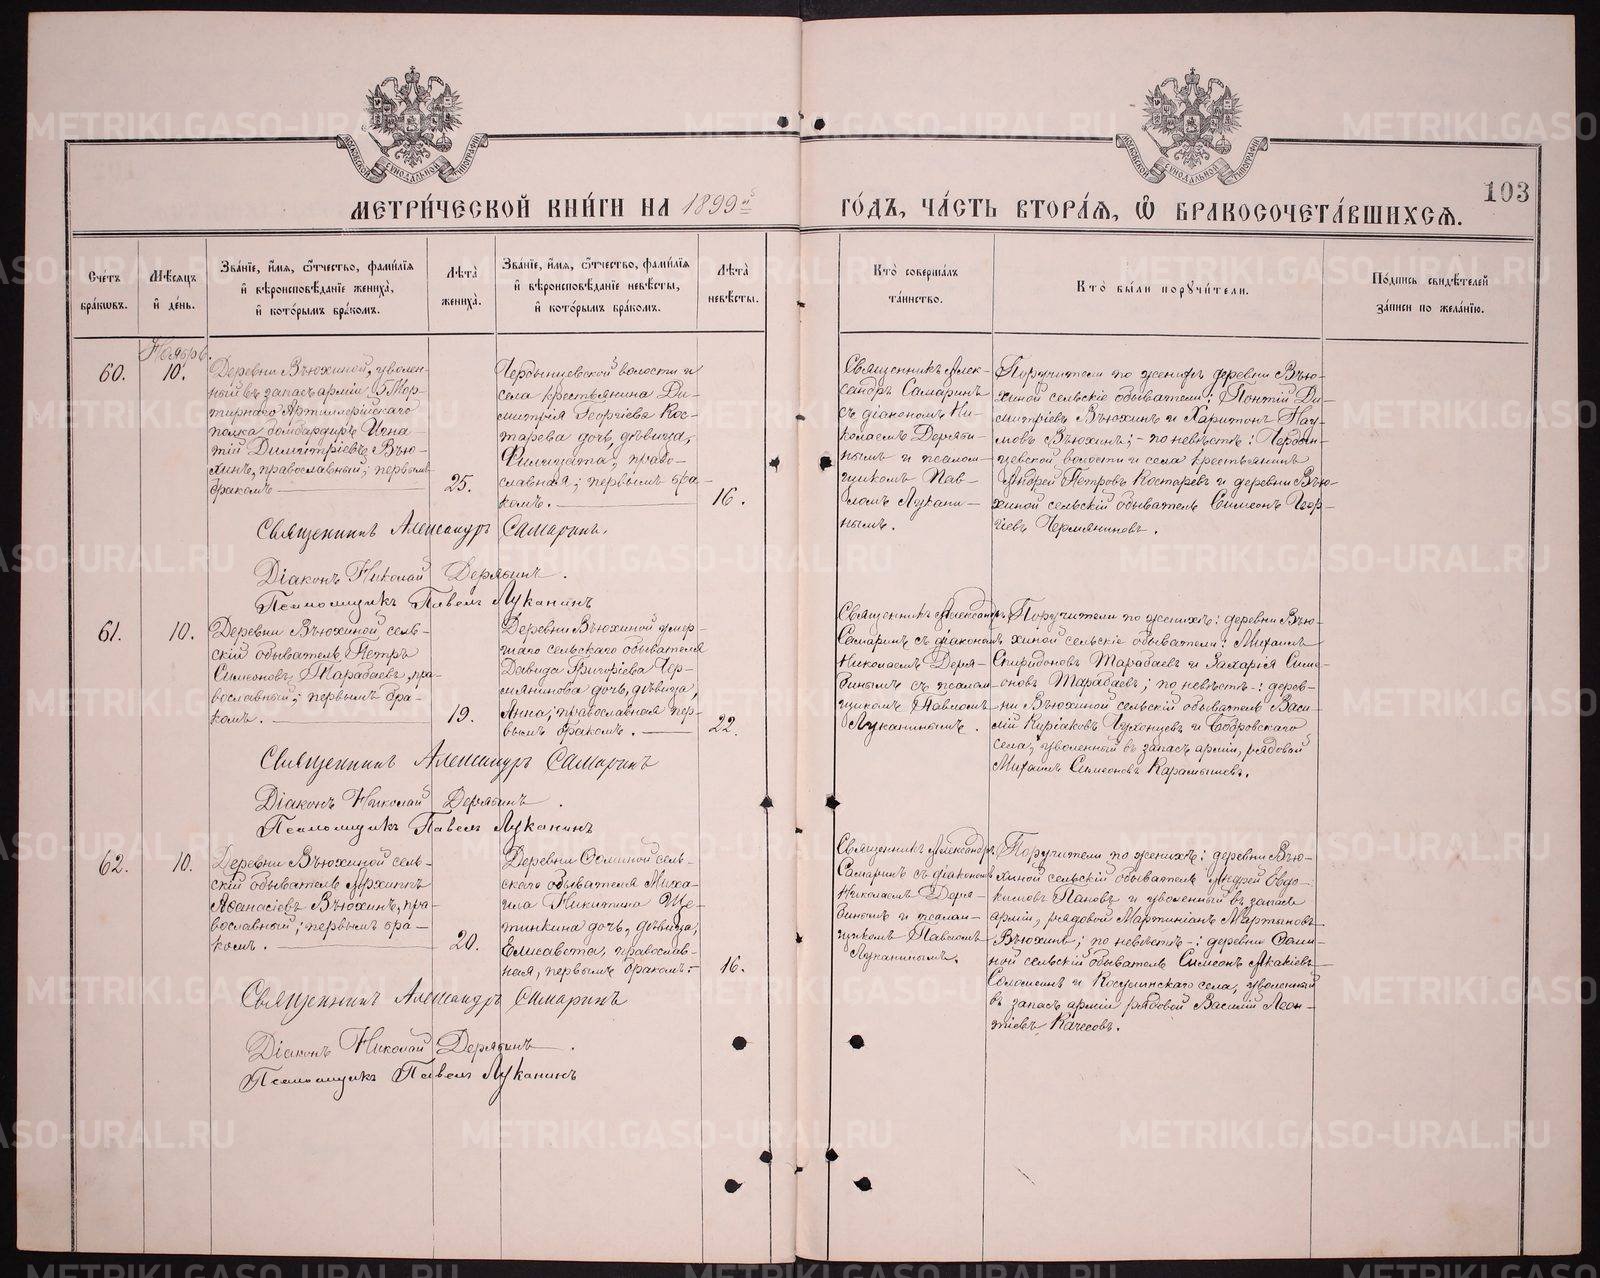 МЕТРИ́ЧЕСКОЙ КНИ́ГИ НА 1899й ГО́ДЪ, ЧА́СТЬ ВТОРА́Ѧ, Ѽ БРАКОСОЧЕТА́ВШИХСѦ.
103
МОСКОВСКОЙ СѴНОДАЛЬНОЙ ТИПОГРАФІИ
МОСКОВСКОЙ СѴНОДАЛЬНОЙ ТИПОГРАФІИ
Сче́тъ
бра́кѡвъ.
Мѣ́сѧцъ
и҆ де́нь.
Зва́нїе, и҆́мѧ, ѻ҆́тчество, фами́лїѧ
и҆ вѣроисповѣ́данїе жениха̀,
и҆ кото́рымъ бра́комъ.
Лѣта̀
жениха̀.
Зва́нїе, и҆́мѧ, ѻ҆́тчество, фами́лїѧ
и҆ вѣроисповѣ́данїе невѣ́сты,
и҆ кото́рымъ бра́комъ.
Лѣта̀
невѣ́сты.
Кто̀ соверша́лъ
та́инство.
Кто̀ бы́ли порꙋчи́тели.
По́дпись свидѣ́телей
за́писи по жела́нїю.
Ноябрь.
60.
10.
Деревни Вьюхиной, уволен-
ный въ запасъ арміи, 5 Мор-
тирнаго Артиллерійскаго
полка бомбардиръ Игна-
тій Димитріевъ Вью-
хинъ, православный; первымъ
бракомъ
25.
волости и
села крестьянина Ди-
митрія Георгіева Кос-
тарева дочь, дѣвица,
право-
славная; первымъ бра-
комъ.
16.
Священникъ Алек-
сандръ Самаринъ
съ діакономъ Ни-
колаемъ Деряби-
нымъ и псалом-
щикомъ Пав-
ломъ Лукани-
нымъ.
Поручители по женихѣ деревни Вью-
хиной сельскіе обыватели: Понтій Ди-
митріевъ Вьюхинъ и Харитонъ Нау-
мовъ Вьюхинъ; – по невѣстѣ:
волости и села крестьянинъ
Андрей Петровъ Костаревъ и деревни Вью-
хиной сельскій обыватель Симеонъ Геор-
гіевъ Чермяниновъ.
Священникъ Александръ Самаринъ.
Діаконъ Николай Дерябинъ.
Псаломщикъ Павелъ Луканинъ
61.
10.
Деревни Вьюхиной сель-
скій обыватель Петръ
Симеоновъ Тарабаевъ, пра-
вославный; первымъ бра-
комъ.
19.
Деревни Вьюхиной умер-
шаго сельскаго обывателя
Давида Григоріева Чер-
мянинова дочь, дѣвица,
Анна; православная пер-
вымъ бракомъ.
22.
Священникъ Александръ
Самаринъ съ діакономъ
Николаемъ Деря-
бинымъ съ псалом-
щикомъ Павломъ
Луканинымъ.
Поручители по женихѣ: деревни Вью-
хиной сельскіе обыватели: Михаилъ
Спиридоновъ Тарабаевъ и Захарія Симе-
оновъ Тарабаевъ; по невѣстѣ: дерев-
ни Вьюхиной сельскій обыватель Васи-
лій Киріаковъ и Бобровскаго
села, уволенный въ запасъ арміи, рядовой
Михаилъ Симеоновъ Карамышевъ.
Священникъ Александръ Самаринъ
Діаконъ Николай Дерябинъ.
Псаломщикъ Павелъ Луканинъ
62.
10.
Деревни Вьюхиной сель-
скій обыватель Архиппъ
Аѳанасіевъ Вьюхинъ, пра-
вославный; первымъ бра-
комъ.
20.
Деревни сель-
скаго обывателя Миха-
ила Никитина Ще-
тинкина дочь, дѣвица,
Елисавета, православ-
ная, первымъ бракомъ.
16.
Священникъ Александръ
Самаринъ съ діакономъ
Николаемъ Деря-
бинымъ и псалом-
щикомъ Павломъ
Луканинымъ.
Поручители по женихѣ: деревни Вью-
хиной сельскій обыватель Андрей Евдо-
кимовъ Пановъ и уволенный въ запасъ
арміи, рядовой Мартиніанъ Мартыновъ
Вьюхинъ; по невѣстѣ: деревни
сельскій обыватель Симеонъ Акакіевъ
и Косулинскаго села, уволенный
въ запасъ арміи рядовой Василій Леон-
тіевъ Качесовъ.
Священникъ Александръ Самаринъ
Діаконъ Николай Дерябинъ.
Псаломщикъ Павелъ Луканинъ
METRIKI.GASO-URAL.RU